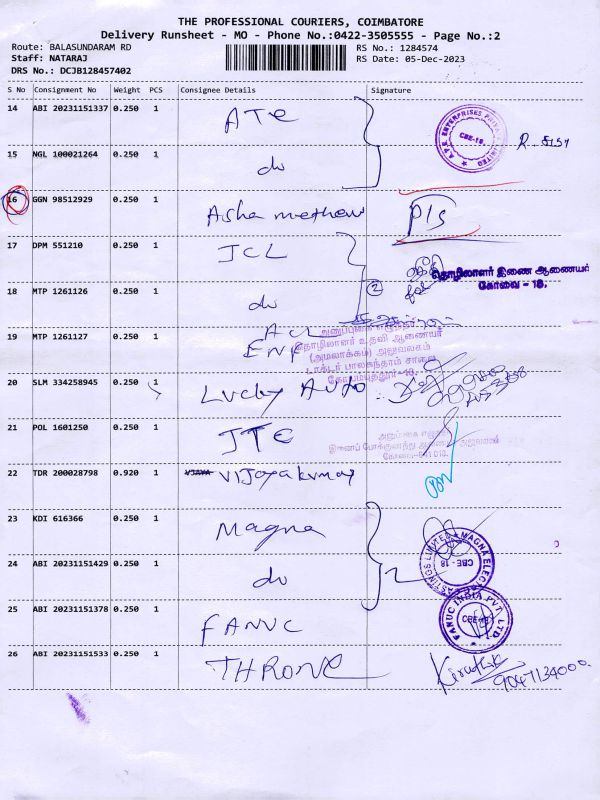 THE PROFESSIONAL COURIERS, COIMBATORE
Delivery Runsheet - MO - Phone No.:0422-3505555 - Page No.:2
Route: BALASUNDARAM RD
RS No.: 1284574
Staff: NATARAJ
RS Date: 05-Dec-2023
DRS No.: DCJB128457402
S No Consignment No Weight PCS Consignee Details Signature
14 ABI 20231151337 0.250 1 ATC
A.T.E. ENTERPRISES PRIVATE LIMITED
CBE-18.
15 NGL 100021264 0.250 1 do
16 GGN 98512929 0.250 1 Asha methew
17 DPM 551210 0.250 1 JCL
தொழிலாளர் இணை ஆணையர்
கோவை - 18.
18 MTP 1261126 0.250 1 do 2
19 MTP 1261127 0.250 1 ACL
தொழிலாளர் உதவி ஆணையர்
(அமலாக்கம்) அலுவலகம்
20 SLM 334258945 0.250 1 Lucky Auto
21 POL 1601250 0.250 1 JTC
22 TDR 200028798 0.920 1 Vijayakumar
23 KDI 616366 0.250 1 Magna
CBE - 18
24 ABI 20231151429 0.250 1 do 2
25 ABI 20231151378 0.250 1 FANUC
FANUC INDIA PVT. LTD.
CBE-18
26 ABI 20231151533 0.250 1 THRONE
9047134000.